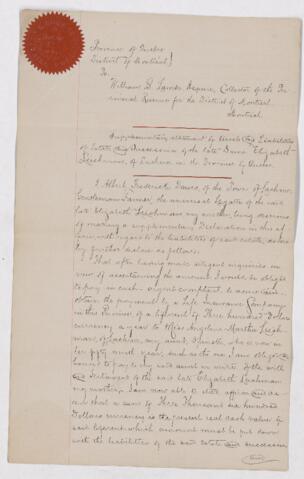 Province of Quebec
District of Montreal
To
William B. Lambe Esquire, Collector of the
Revenue for the District of Montreal
Montreal.
Supplementary statement by
of Estate and Succession of the late Dame Elizabeth
Leishman, of Lachine in the Province of Quebec.
I Albert Frederick Dawes, of the Town of Lachine,
Gentleman Farmer, the universal legatee of the said
late Elizabeth Leishman my mother, being desirous
of making a supplementary Declaration in this
with regard to the liabilities of said estate, do
declare as follows:
That after having made diligent inquiries in
view of ascertaining the amount I would be obliged
to pay in cash
obtain the payment by a Life Insurance Company
in this Province of a liferent of Three hundred Dollars
currency a year to Miss Angelina Martha Leish-
man, of Lachine, my aunt, Spinster, who is now in
her fifty ninth year, and as to me I am obliged
to pay to my said aunt in virtue of the will
and Testament of the said late Elizabeth Leishman
my mother, I am now able to state affirm and de-
clare that a sum of Three Thousand six hundred
Dollars currency is the present real cash value of
said liferent which amount must be put down
with the liabilities of the said Estate and succession